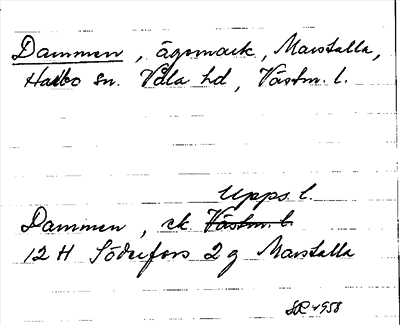 Dammen, ägomark, Marstalla,
Harbo sn. Våla hd, Västm. l.
Upps. l.
Dammen, ek Västm. l.
12 H Söderfors 2 g Marstalla
1958